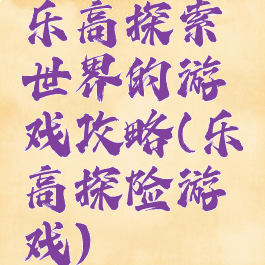 乐高探索
世界的游
戏攻略(乐
高探险游
戏)